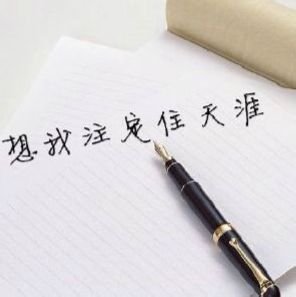 想我注定住天涯